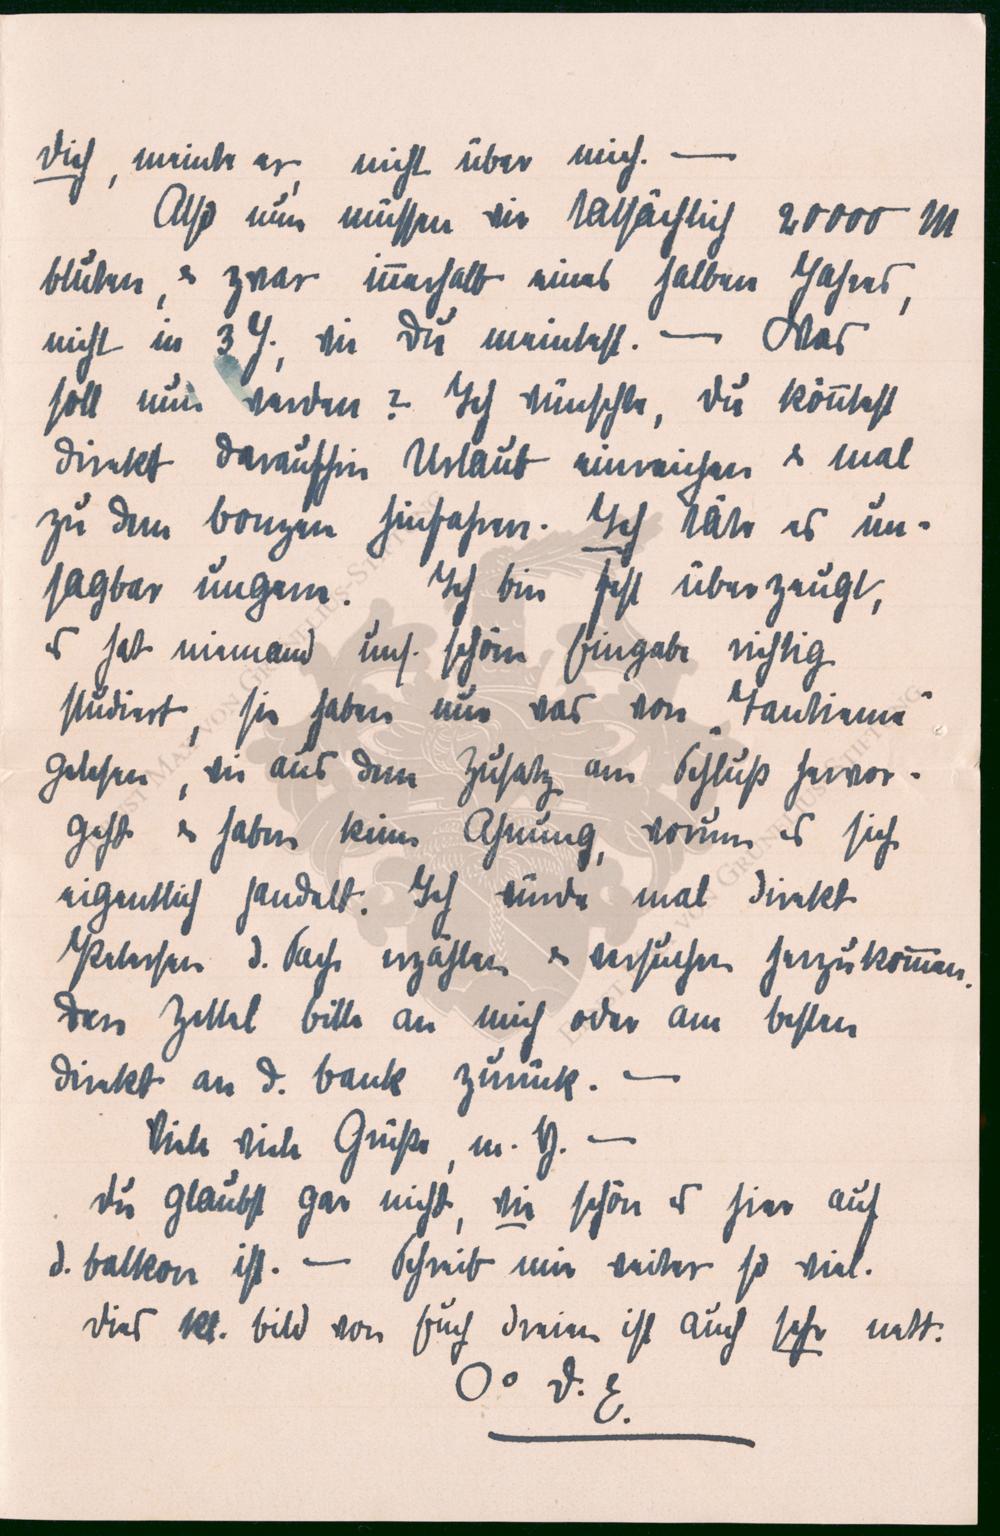 Dich, meinte er, nicht über mich. —
Also nun müssen wir tatsächlich 20000 M
bluten, & zwar iñerhalb eines halben Jahres,
nicht in 3 J., wie Du meintest. — Was
soll nun werden? Ich wünschte, Du köñtest
direkt daraufhin Urlaub einreichen & mal
zu dem Bonzen hinfahren. Ich täte es un-
sagbar ungern. Ich bin fest überzeugt,
es hat niemand uns. schöne Eingabe richtig
studiert, sie haben nur was von „Tantieme"
gelesen, wie aus dem Zusatz am Schluß hervor-
geht & haben keine Ahnung, worum es sich
eigentlich handelt. Ich würde mal direkt
Petersen d. Sache erzählen & versuchen herzukom̅en.
Den Zettel bitte an mich oder am besten
direkt an d. Bank zurück. —
Viele viele Grüße, m. H. —
Du glaubst gar nicht, wie schön es hier auf
d. Balkon ist. — Schreib mir weiter so viel.
Dies kl. Bild von Euch dreien ist auch sehr nett.
D. E.
ERNST MAX VON GRUNELIUS-STIFTUNG
VON GRUNELIUS-STIFTUNG